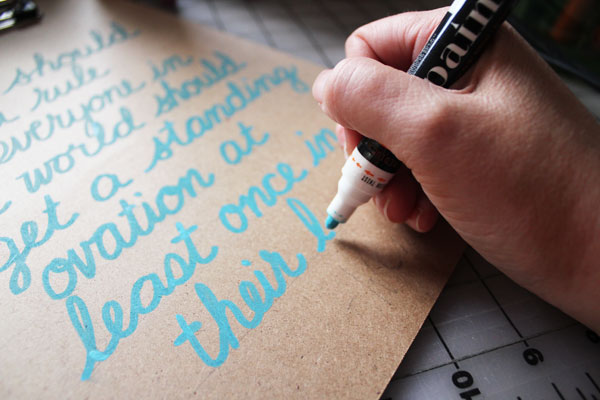 should
rule
everyone in
world should
get a standing
ovation at
least once in
their l
pain
9
10